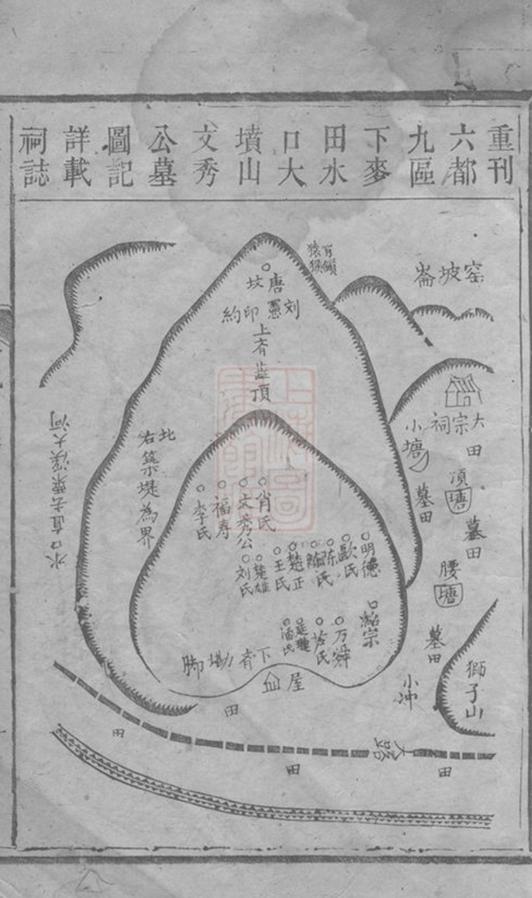 重刊
六都
九區
下麥
田水
口大
墳山
文秀
公墓
圖記
詳載
祠誌
窑坡崙
唐憲
坟
刘
印
約
上有
頂
大宗祠
小塘
田
頂塘
墓田
墓田
腰塘
墓田
獅子山
小冲
北
右築堤為界
水口直去
大河
肖氏
文秀公
福寿
李氏
刘氏
楚雄
王氏
楚正
陈氏
歐氏
明德
紹宗
万舜
氏
下有墈脚
屋
田
田
田
田
大路
上海圖